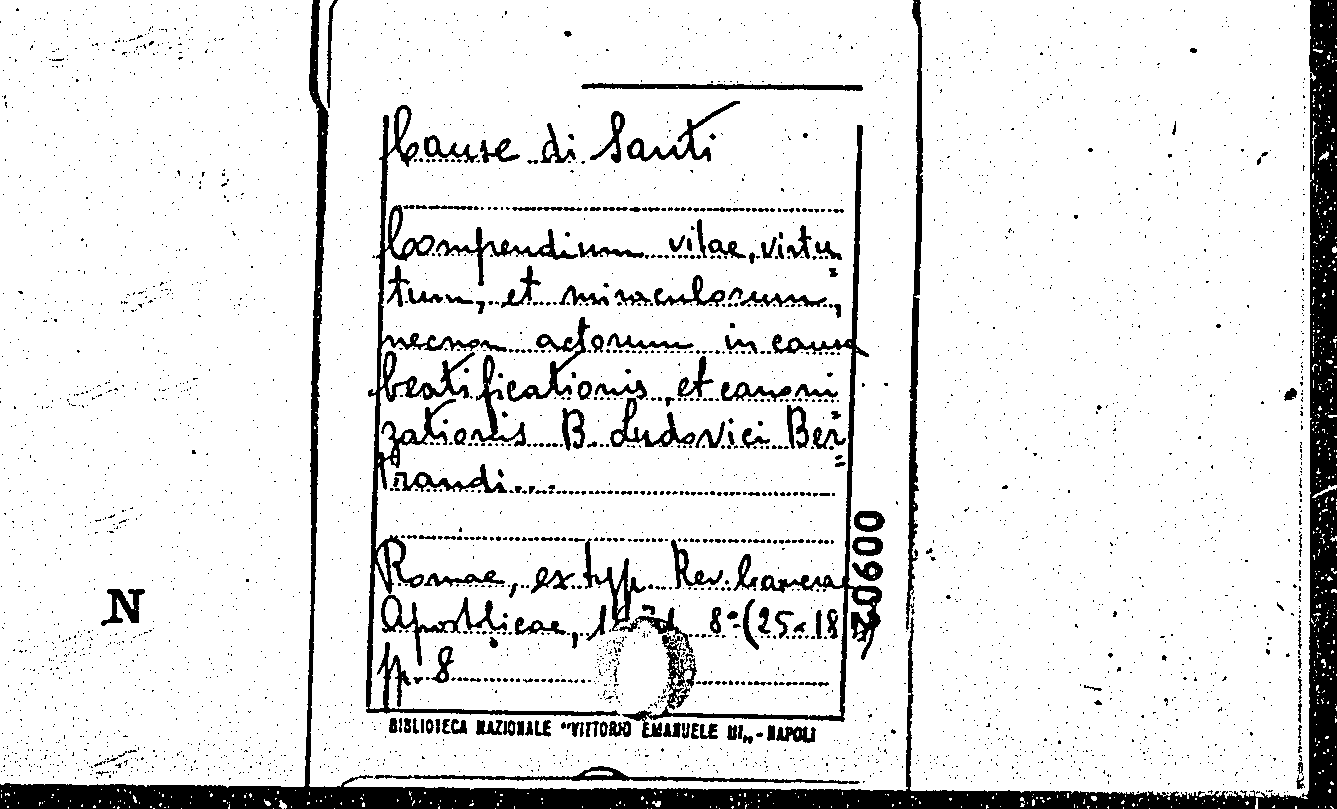 Cause di Santi
Compendium vitae, virtu=
tum, et miraculorum,
necnon actorum in causa
beatificationis, et canoni=
zationis B. Ludovici Ber=
trandi...
Romae, ex typ. Rev. Camerae
Apostolicae, 8° (25×18)
pp. 8
BIBLIOTECA NAZIONALE "VITTORIO EMANUELE III„ - NAPOLI
00902
N